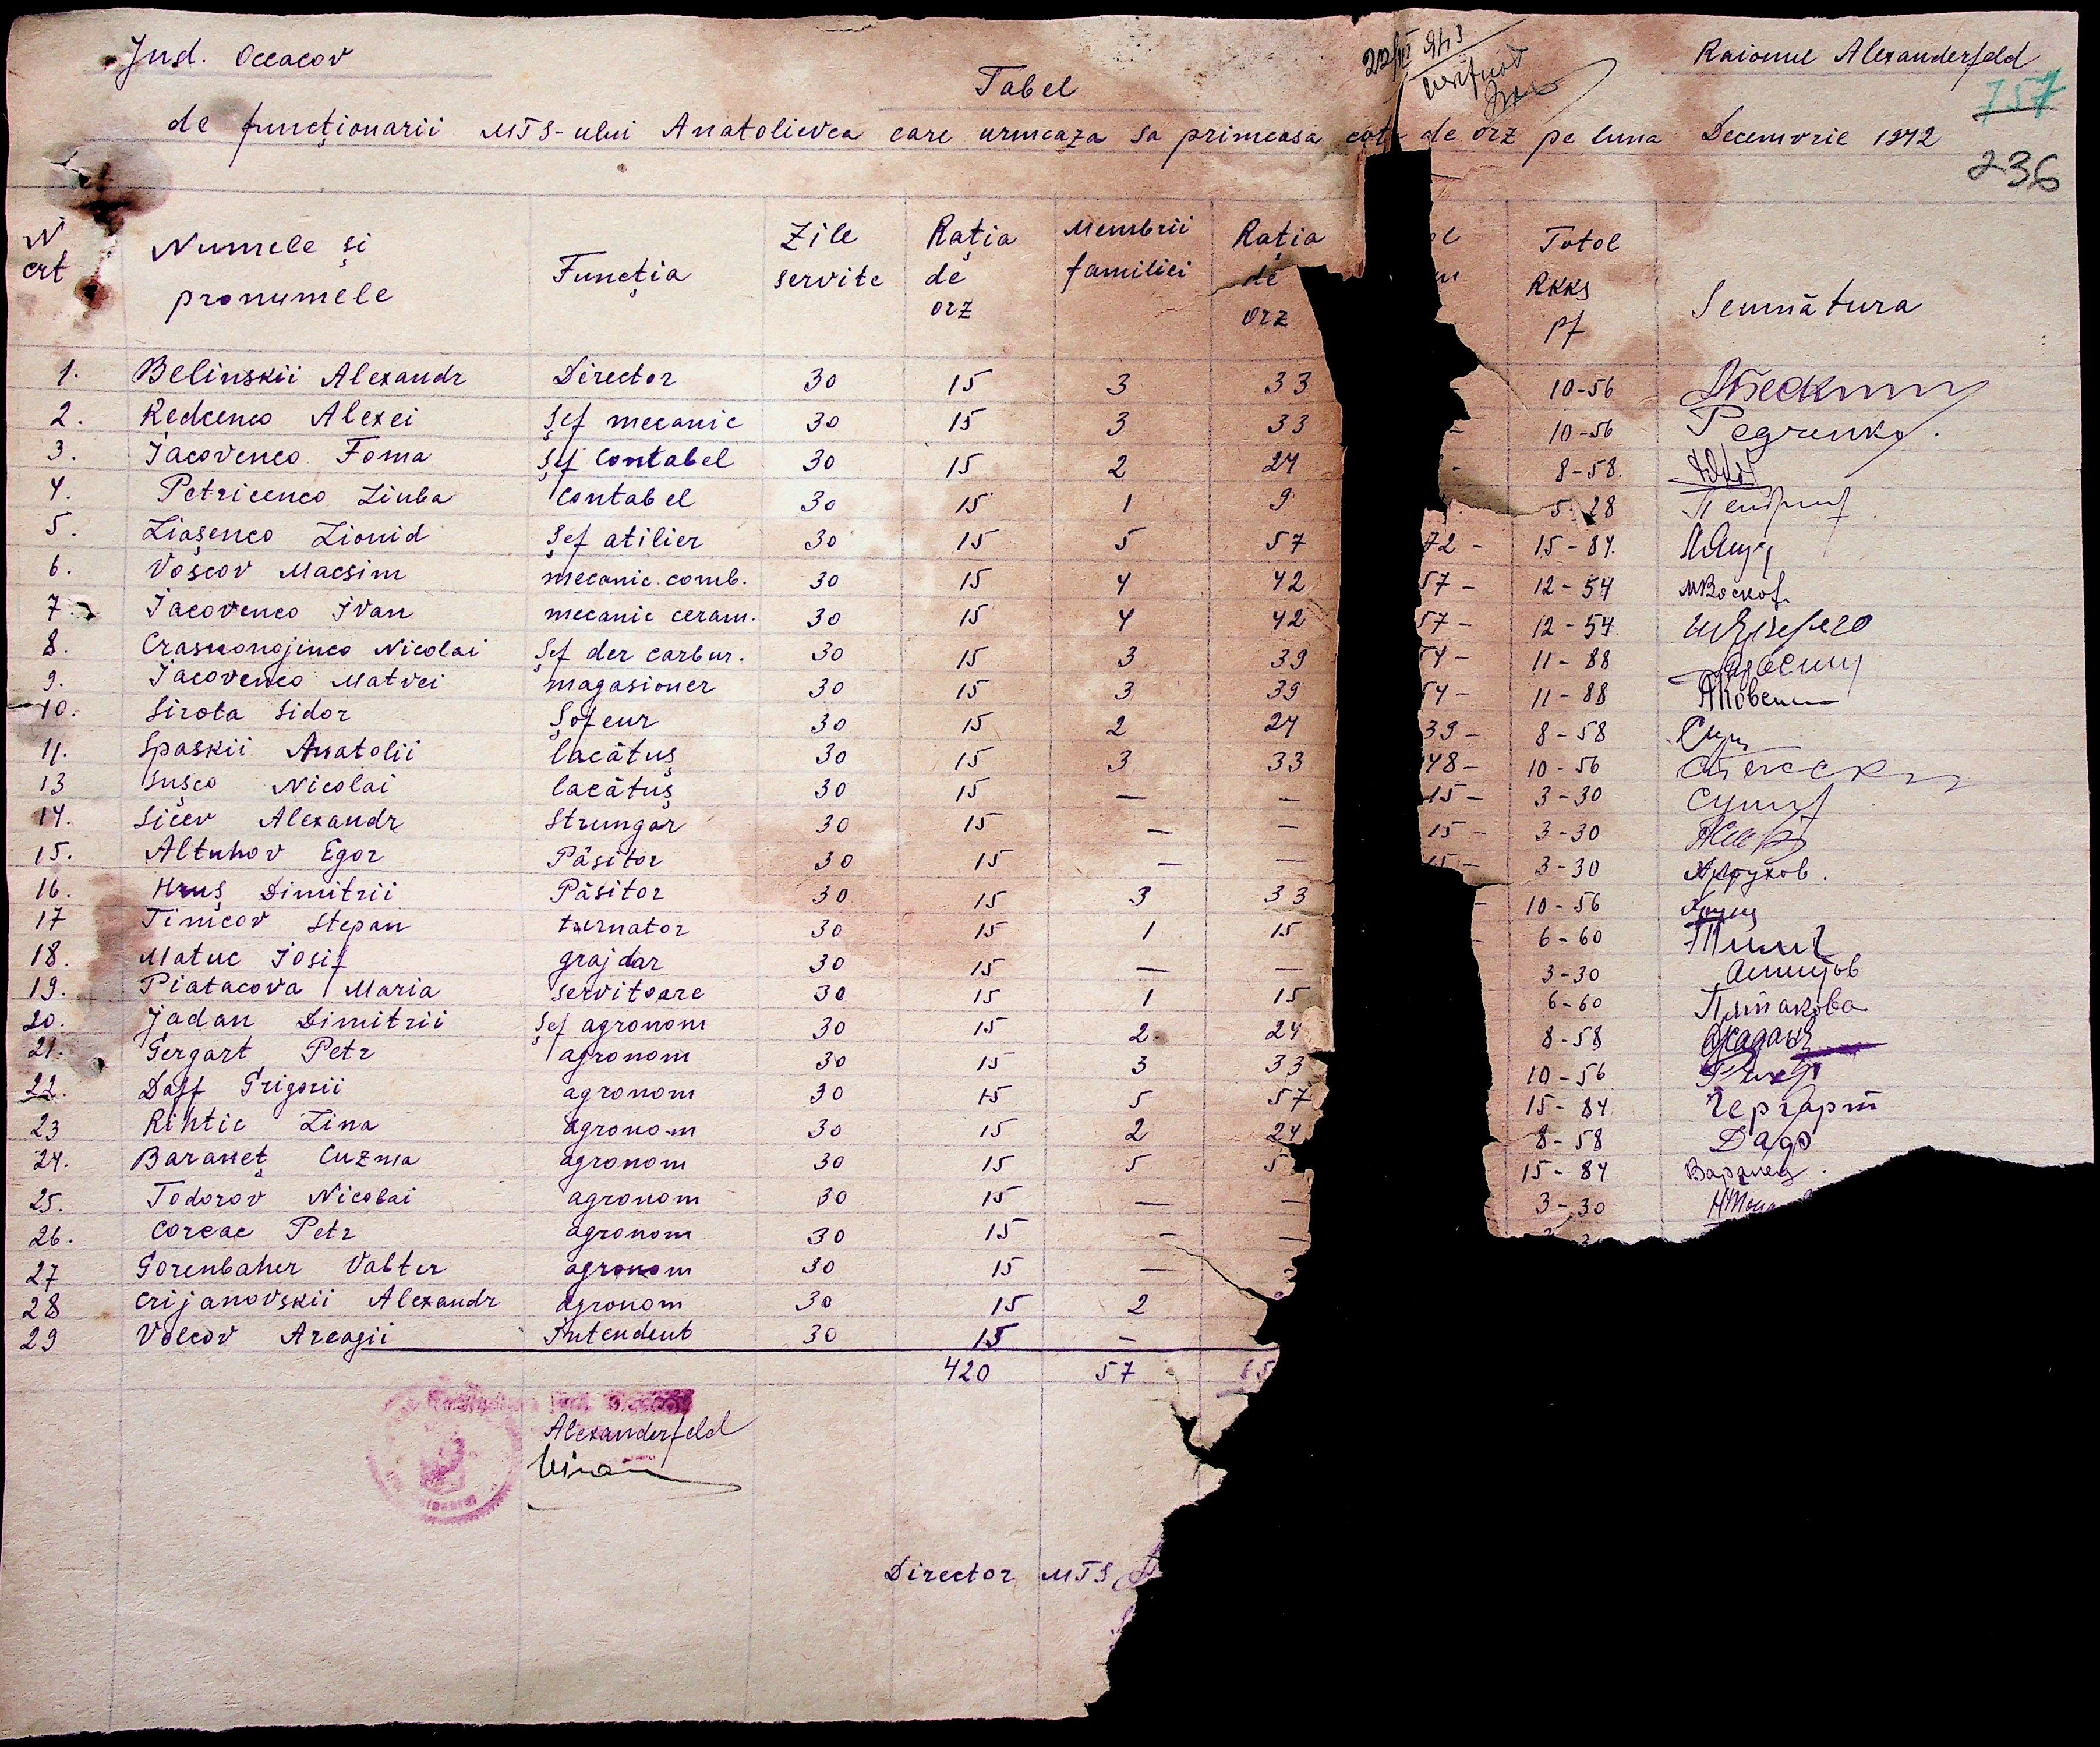 Jud. Oceacov
Raionul Alexanderfeld
22/VI 943
Tabel
757
de funcţionarii MTS-ului Anatolievca care urmeaza sa primeasa cota de orz pe luna Decemvrie 1942
236
N crt Numele şi pronumele Funcţia Zile servite Raţia de orz Membrii familiei Raţia de orz Totol RKKS pf Semnătura
1. Belinskii Alexandr Director 30 15 3 33 10-56
2. Redcenco Alexei Şef mecanic 30 15 3 33 - 10-56 Редченко.
3. Jacovenco Foma Şef Contabel 30 15 2 24 - 8-58.
4. Petricenco Liuba Contabel 30 15 1 9 5-28
5. Liaşenco Lionid Şef atilier 30 15 5 57 72 - 15-84.
6. Voşcov Macsim mecanic. comb. 30 15 4 42 57 - 12-54
7. Jacovenco Jvan mecanic ceram. 30 15 4 42 57 - 12-54
8. Crasnonojinco Nicolai Şef der carbur. 30 15 3 39 54 - 11-88
9. Jacovenco Matvei magasioner 30 15 3 39 54 - 11-88
10. Sirota Sidor Şofeur 30 15 2 24 39 - 8-58
11. Spaskii Anatolii lacătuş 30 15 3 33 48 - 10-56
13 Suşco Nicolai lacătuş 30 15 — — 15 - 3-30
14. Sicev Alexandr Strungar 30 15 — — 15 - 3-30
15. Altuhov Egor Păsitor 30 15 — — 15 - 3-30
16. Hruş Dimitrii Păsitor 30 15 3 33 - 10-56
17 Timcov Stepan turnator 30 15 1 15 - 6-60
18. Matuc Josif grajdar 30 15 — — 3-30
19. Piatacova Maria servitoare 30 15 1 15 6-60 Пятакова
20. Jadan Dimitrii Şef agronom 30 15 2 24 8-58 Жадан
21. Gergart Petr agronom 30 15 3 33 10-56
22. Daff Grigorii agronom 30 15 5 57 15-84 Гергарт
23 Rihtic Lina agronom 30 15 2 24 8-58 Даф
24. Baraneţ Cuzma agronom 30 15 5 5 15-84 Баранец.
25. Todorov Nicolai agronom 30 15 — — 3-30
26. Corcac Petr agronom 30 15 - —
27 Gorenbaher Valter agronom 30 15 —
28 Crijanovskii Alexandr agronom 30 15 2
29 Volcov Arcagii Intendent 30 15 —
420 57
Alexanderfeld
Director MTS